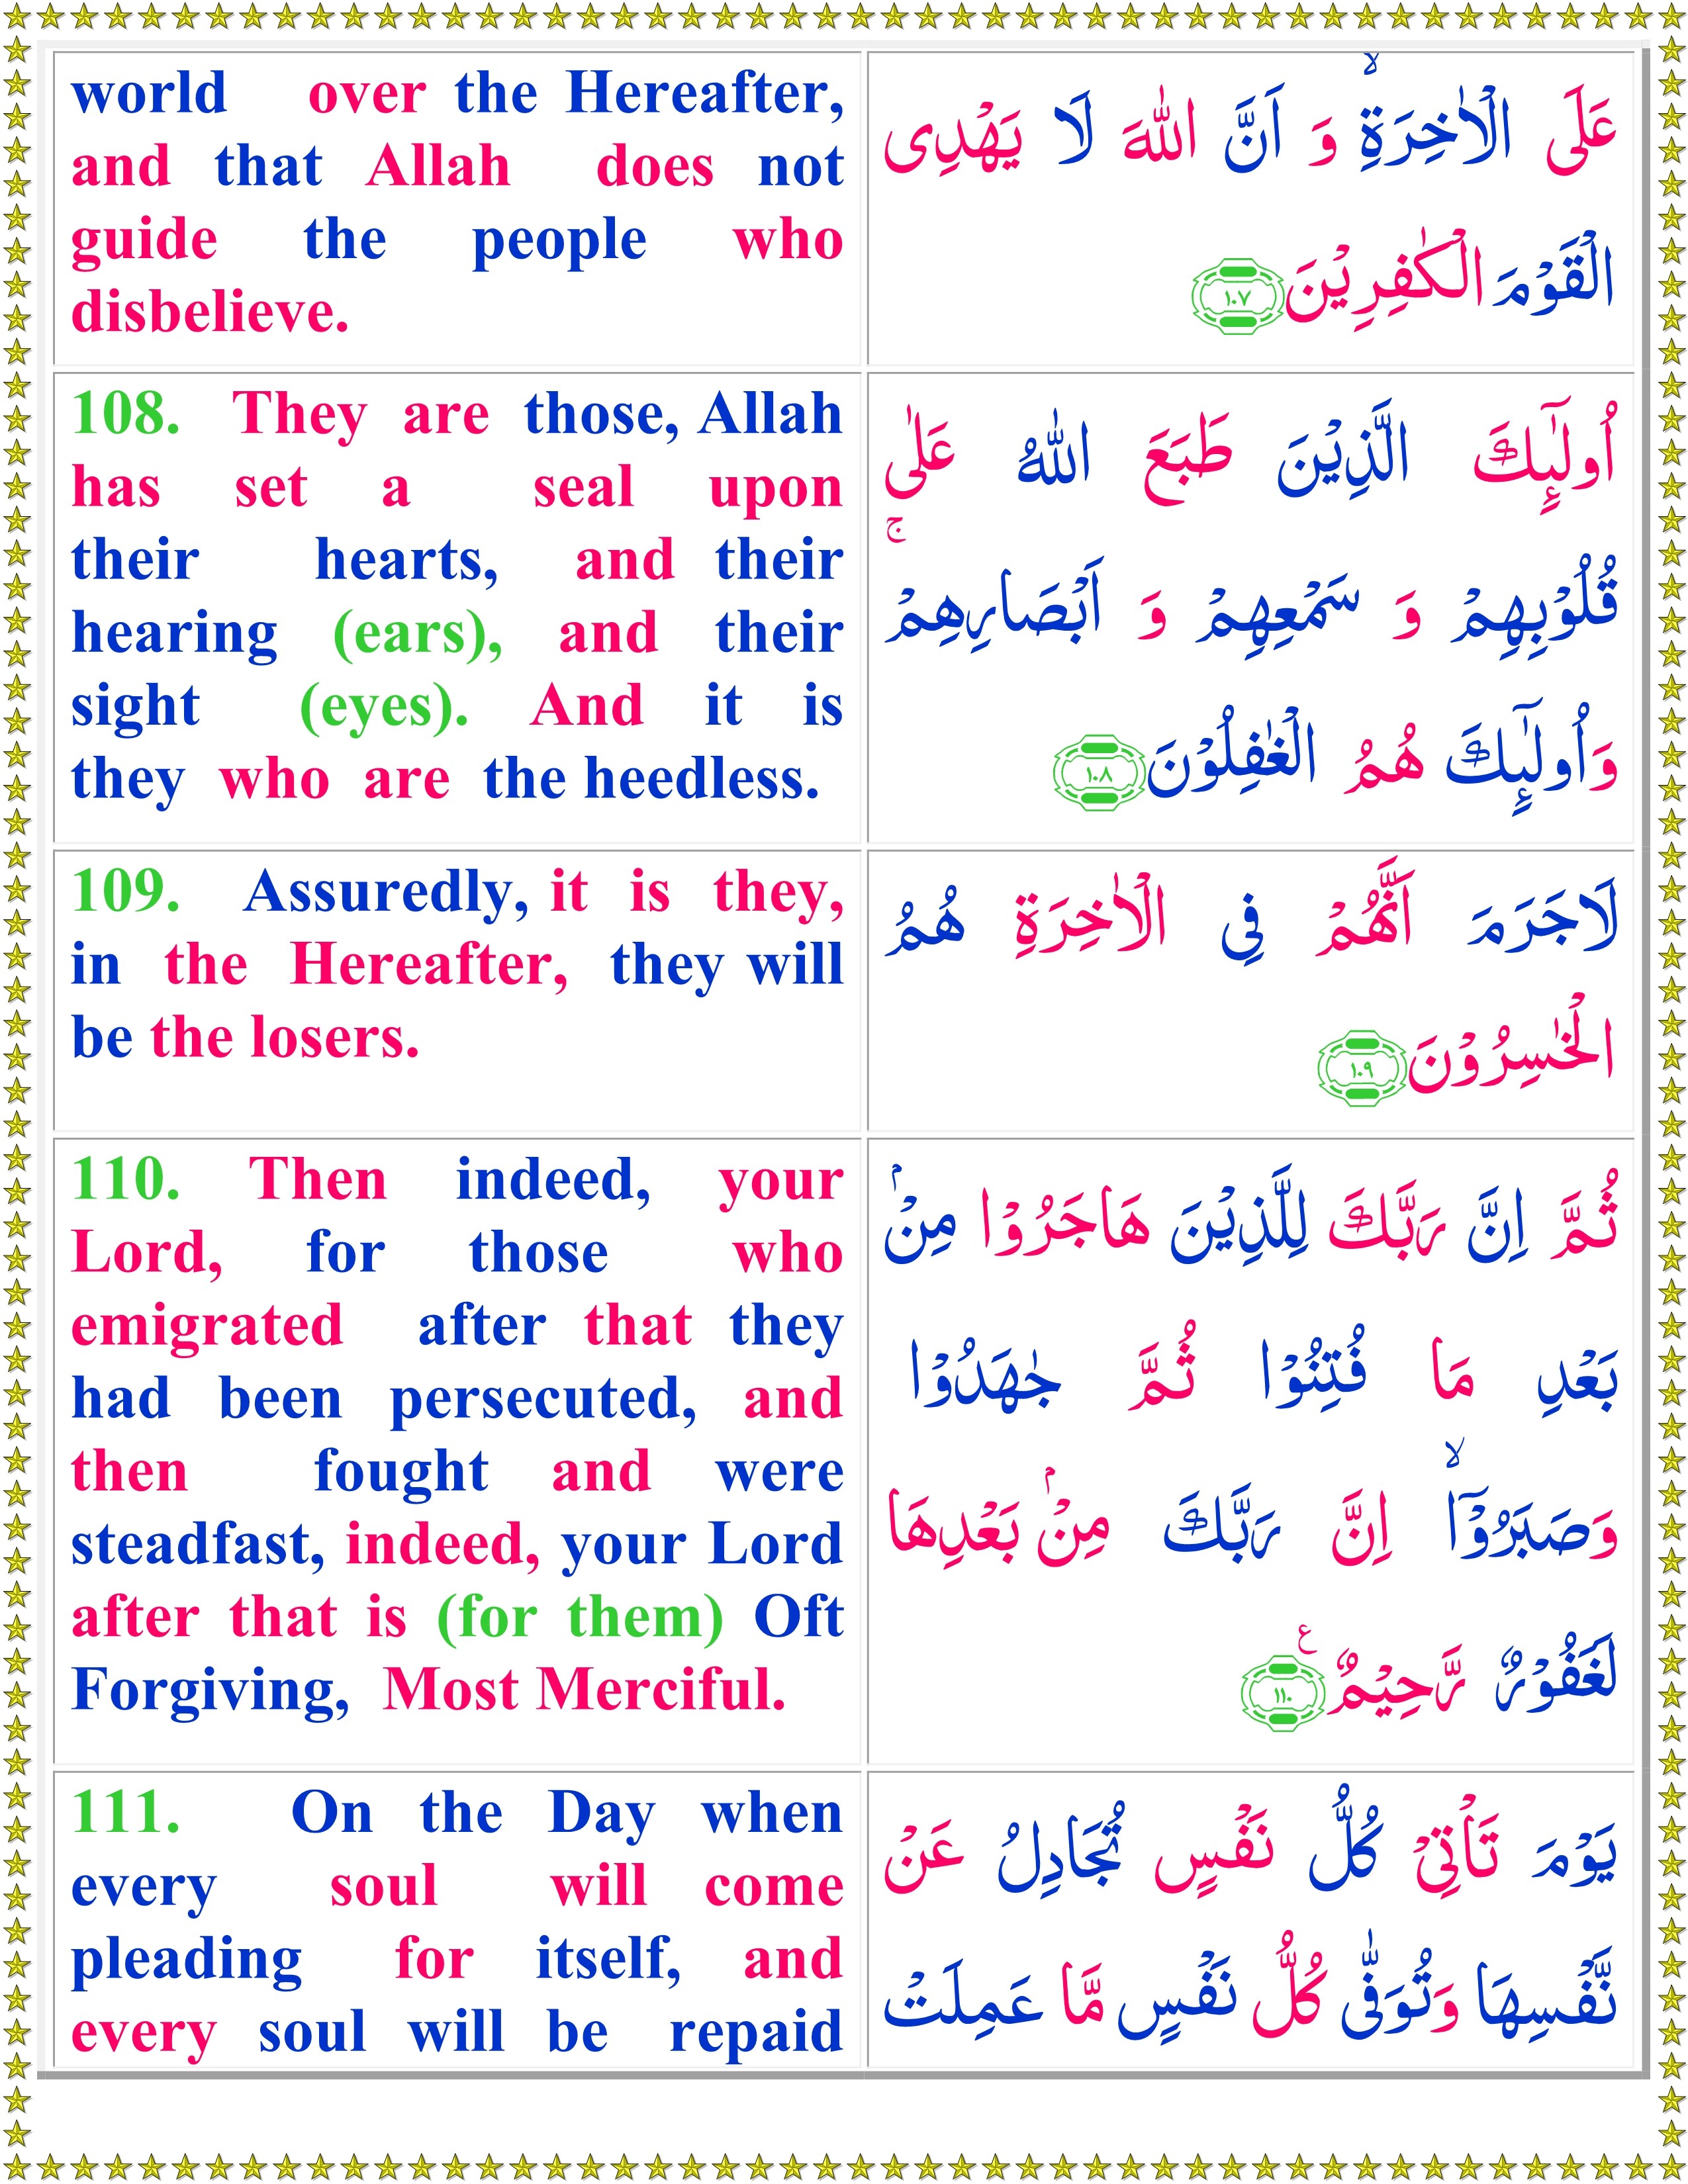 world over the Hereafter,
and that Allah does not
guide the people who
disbelieve.
عَلَى الْاٰخِرَةِ ۙ وَ اَنَّ اللّٰهَ لَا يَهْدِى
الْقَوْمَ الْكٰفِرِيْنَ ۱۰۷
108. They are those, Allah
has set a seal upon
their hearts, and their
hearing (ears), and their
sight (eyes). And it is
they who are the heedless.
اُولٰٓٮِٕكَ الَّذِيْنَ طَبَعَ اللّٰهُ عَلٰى
قُلُوْبِهِمْ وَ سَمْعِهِمْ وَ اَبْصَارِهِمْ ۚ
وَاُولٰٓٮِٕكَ هُمُ الْغٰفِلُوْنَ ۱۰۸
109. Assuredly, it is they,
in the Hereafter, they will
be the losers.
لَاجَرَمَ اَنَّهُمْ فِى الْاٰخِرَةِ هُمُ
الْخٰسِرُوْنَ ۱۰۹
110. Then indeed, your
Lord, for those who
emigrated after that they
had been persecuted, and
then fought and were
steadfast, indeed, your Lord
after that is (for them) Oft
Forgiving, Most Merciful.
ثُمَّ اِنَّ رَبَّكَ لِلَّذِيْنَ هَاجَرُوْا مِنْۢ
بَعْدِ مَا فُتِنُوْا ثُمَّ جٰهَدُوْا
وَصَبَرُوْۤا ۙ اِنَّ رَبَّكَ مِنْۢ بَعْدِهَا
لَغَفُوْرٌ رَّحِيْمٌ ۱۱۰ ع
111. On the Day when
every soul will come
pleading for itself, and
every soul will be repaid
يَوْمَ تَاْتِىْ كُلُّ نَفْسٍ تُجَادِلُ عَنْ
نَّفْسِهَا وَتُوَفّٰى كُلُّ نَفْسٍ مَّا عَمِلَتْ